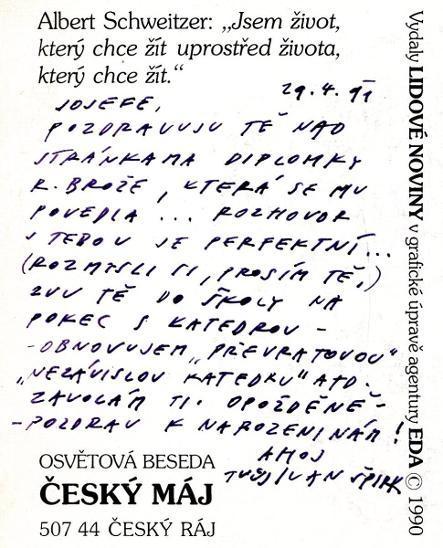 Albert Schweitzer: „Jsem život,
který chce žít uprostřed života,
který chce žít.“
29. 4. 91
JOSEFE,
POZDRAVUJU TĚ NAD
STRÁNKAMA DIPLOMKY
R. BROŽE, KTERÁ SE MU
POVEDLA ... ROZHOVOR
S TEBOU JE PERFEKTNÍ...
(ROZMYSLI SI, PROSÍM TĚ,)
ZVU TĚ DO ŠKOLY NA
POKEC S KATEDROU -
- OBNOVUJEM „PŘEVRATOVOU“
„NEZÁVISLOU KATEDRU“ ATD.
ZAVOLÁM TI. OPOŽDĚNĚ -
- POZDRAV K NAROZENINÁM!
AHOJ
TVŮJ IVAN
OSVĚTOVÁ BESEDA
ČESKÝ MÁJ
507 44 ČESKÝ RÁJ
Vydaly LIDOVÉ NOVINY v grafické úpravě agentury EDA © 1990